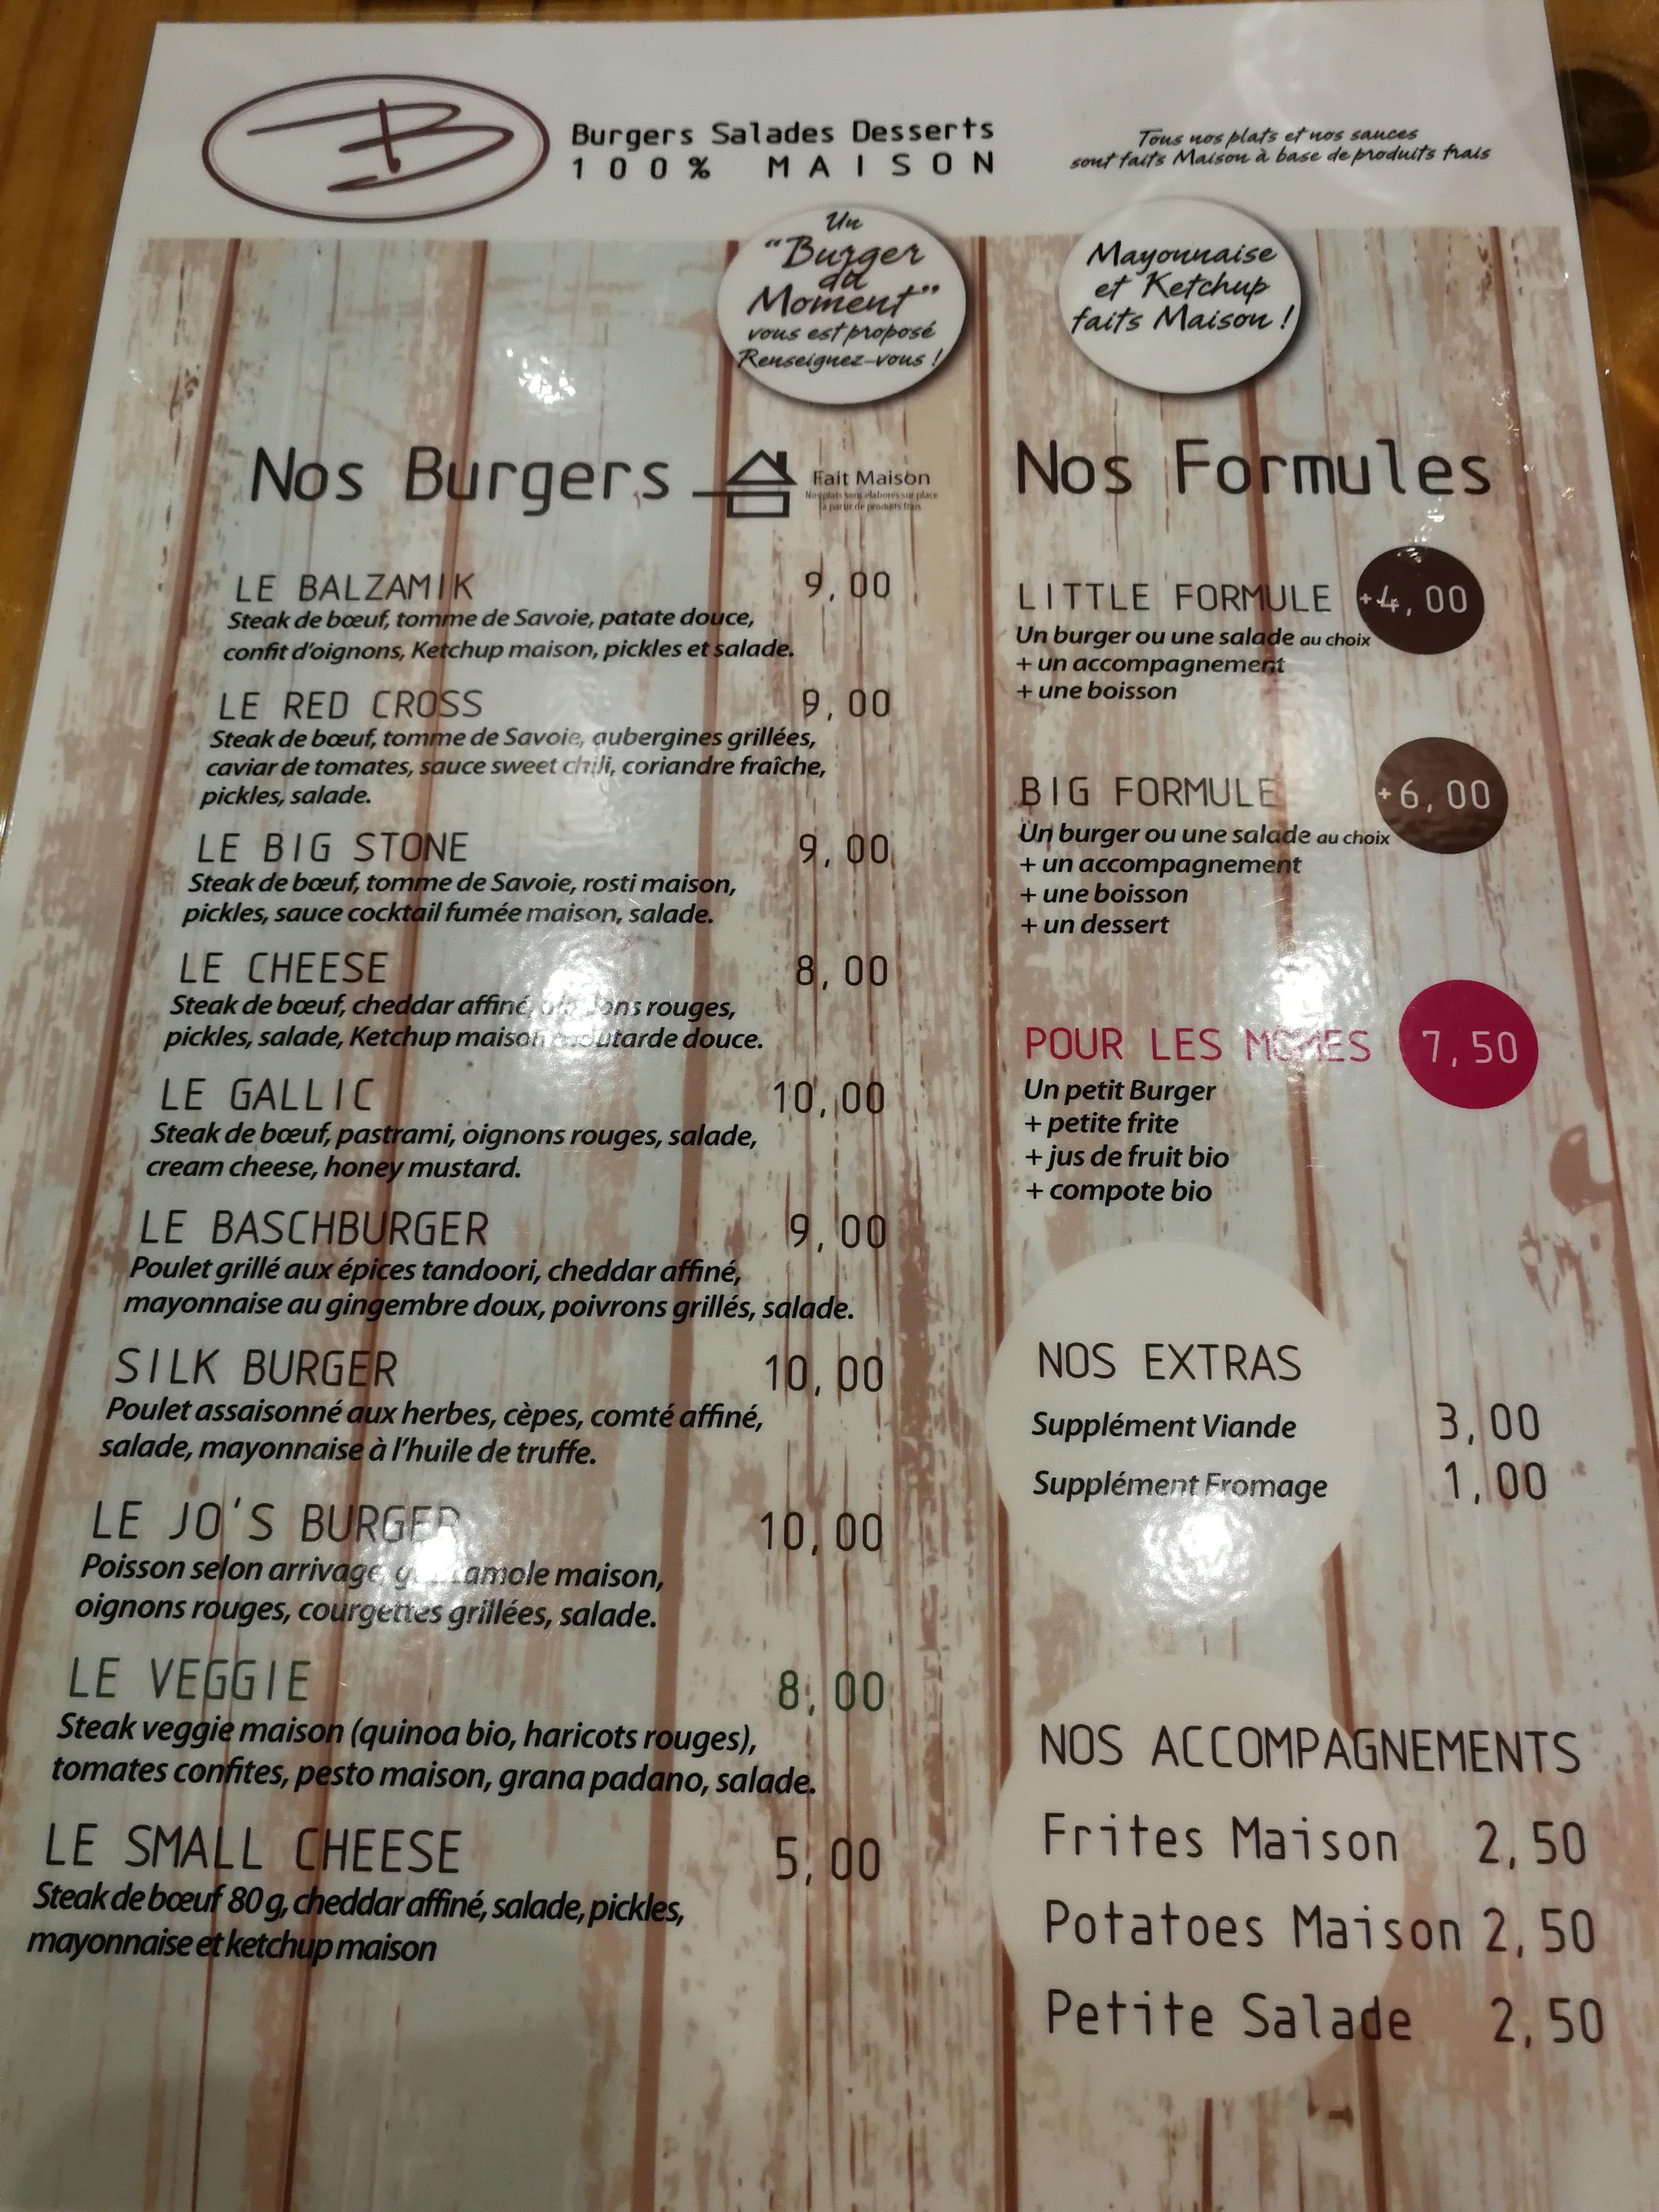 B
Burgers Salades Desserts
100% MAISON
Tous nos plats et nos sauces
sont faits Maison à base de produits frais
Un
"Burger
du
Moment"
vous est proposé
Renseignez-vous !
Mayonnaise
et Ketchup
faits Maison !
Nos Burgers
Fait Maison
Nos plats sont élaborés sur place
à partir de produits frais
LE BALZAMIK 9,00
Steak de bœuf, tomme de Savoie, patate douce,
confit d'oignons, Ketchup maison, pickles et salade.
LE RED CROSS 9,00
Steak de bœuf, tomme de Savoie, aubergines grillées,
caviar de tomates, sauce sweet chili, coriandre fraîche,
pickles, salade.
LE BIG STONE 9,00
Steak de bœuf, tomme de Savoie, rosti maison,
pickles, sauce cocktail fumée maison, salade.
LE CHEESE 8,00
Steak de bœuf, cheddar affiné, rouges,
pickles, salade, Ketchup maison moutarde douce.
LE GALLIC 10,00
Steak de bœuf, pastrami, oignons rouges, salade,
cream cheese, honey mustard.
LE BASCHBURGER 9,00
Poulet grillé aux épices tandoori, cheddar affiné,
mayonnaise au gingembre doux, poivrons grillés, salade.
SILK BURGER 10,00
Poulet assaisonné aux herbes, cèpes, comté affiné,
salade, mayonnaise à l'huile de truffe.
LE JO'S BURGER 10,00
Poisson selon arrivage, guacamole maison,
oignons rouges, courgettes grillées, salade.
LE VEGGIE 8,00
Steak veggie maison (quinoa bio, haricots rouges),
tomates confites, pesto maison, grana padano, salade.
LE SMALL CHEESE 5,00
Steak de bœuf 80 g, cheddar affiné, salade, pickles,
mayonnaise et ketchup maison
Nos Formules
LITTLE FORMULE +4,00
Un burger ou une salade au choix
+ un accompagnement
+ une boisson
BIG FORMULE +6,00
Un burger ou une salade au choix
+ un accompagnement
+ une boisson
+ un dessert
POUR LES MOMES 7,50
Un petit Burger
+ petite frite
+ jus de fruit bio
+ compote bio
NOS EXTRAS
Supplément Viande 3,00
Supplément Fromage 1,00
NOS ACCOMPAGNEMENTS
Frites Maison 2,50
Potatoes Maison 2,50
Petite Salade 2,50